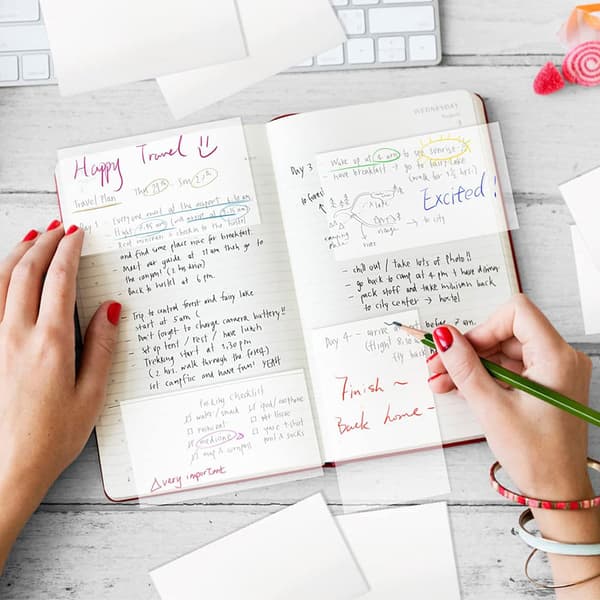 Happy Travel !!
Travel Plan Thu 29th Sun 2nd
Day 1 - Everyone meet at the airport 6.30 am
and find some place nice for breakfast
Meet our guide at 11 am then go to
the canyons (2 hrs drive)
Back to hostel at 6 pm.
Trip to central forest and fairy lake
start at 5 am
Don't forget to change camera battery!!
- set up tent / rest / have lunch
Trekking start at 1.30 pm
(2 hrs. walk through the forest)
set campfire and have fun! YEAH
Packing checklist
water / snack
raincoat
medicine
map & compass
ipod / earphone
wet tissue
△ very important
WEDNESDAY
Day 3
Wake up at 4 am to see sunrise
have breakfast → go to fairy lake
to forest
Excited!
→ to city
- chill out / take lots of photo!!
- go back to camp at 4 pm + have dinner
- pack stuff and take minivan back
to city center → hostel
Day 4 - arrive before 7 am
(flight 8.
fly back
Finish ~
Back home -